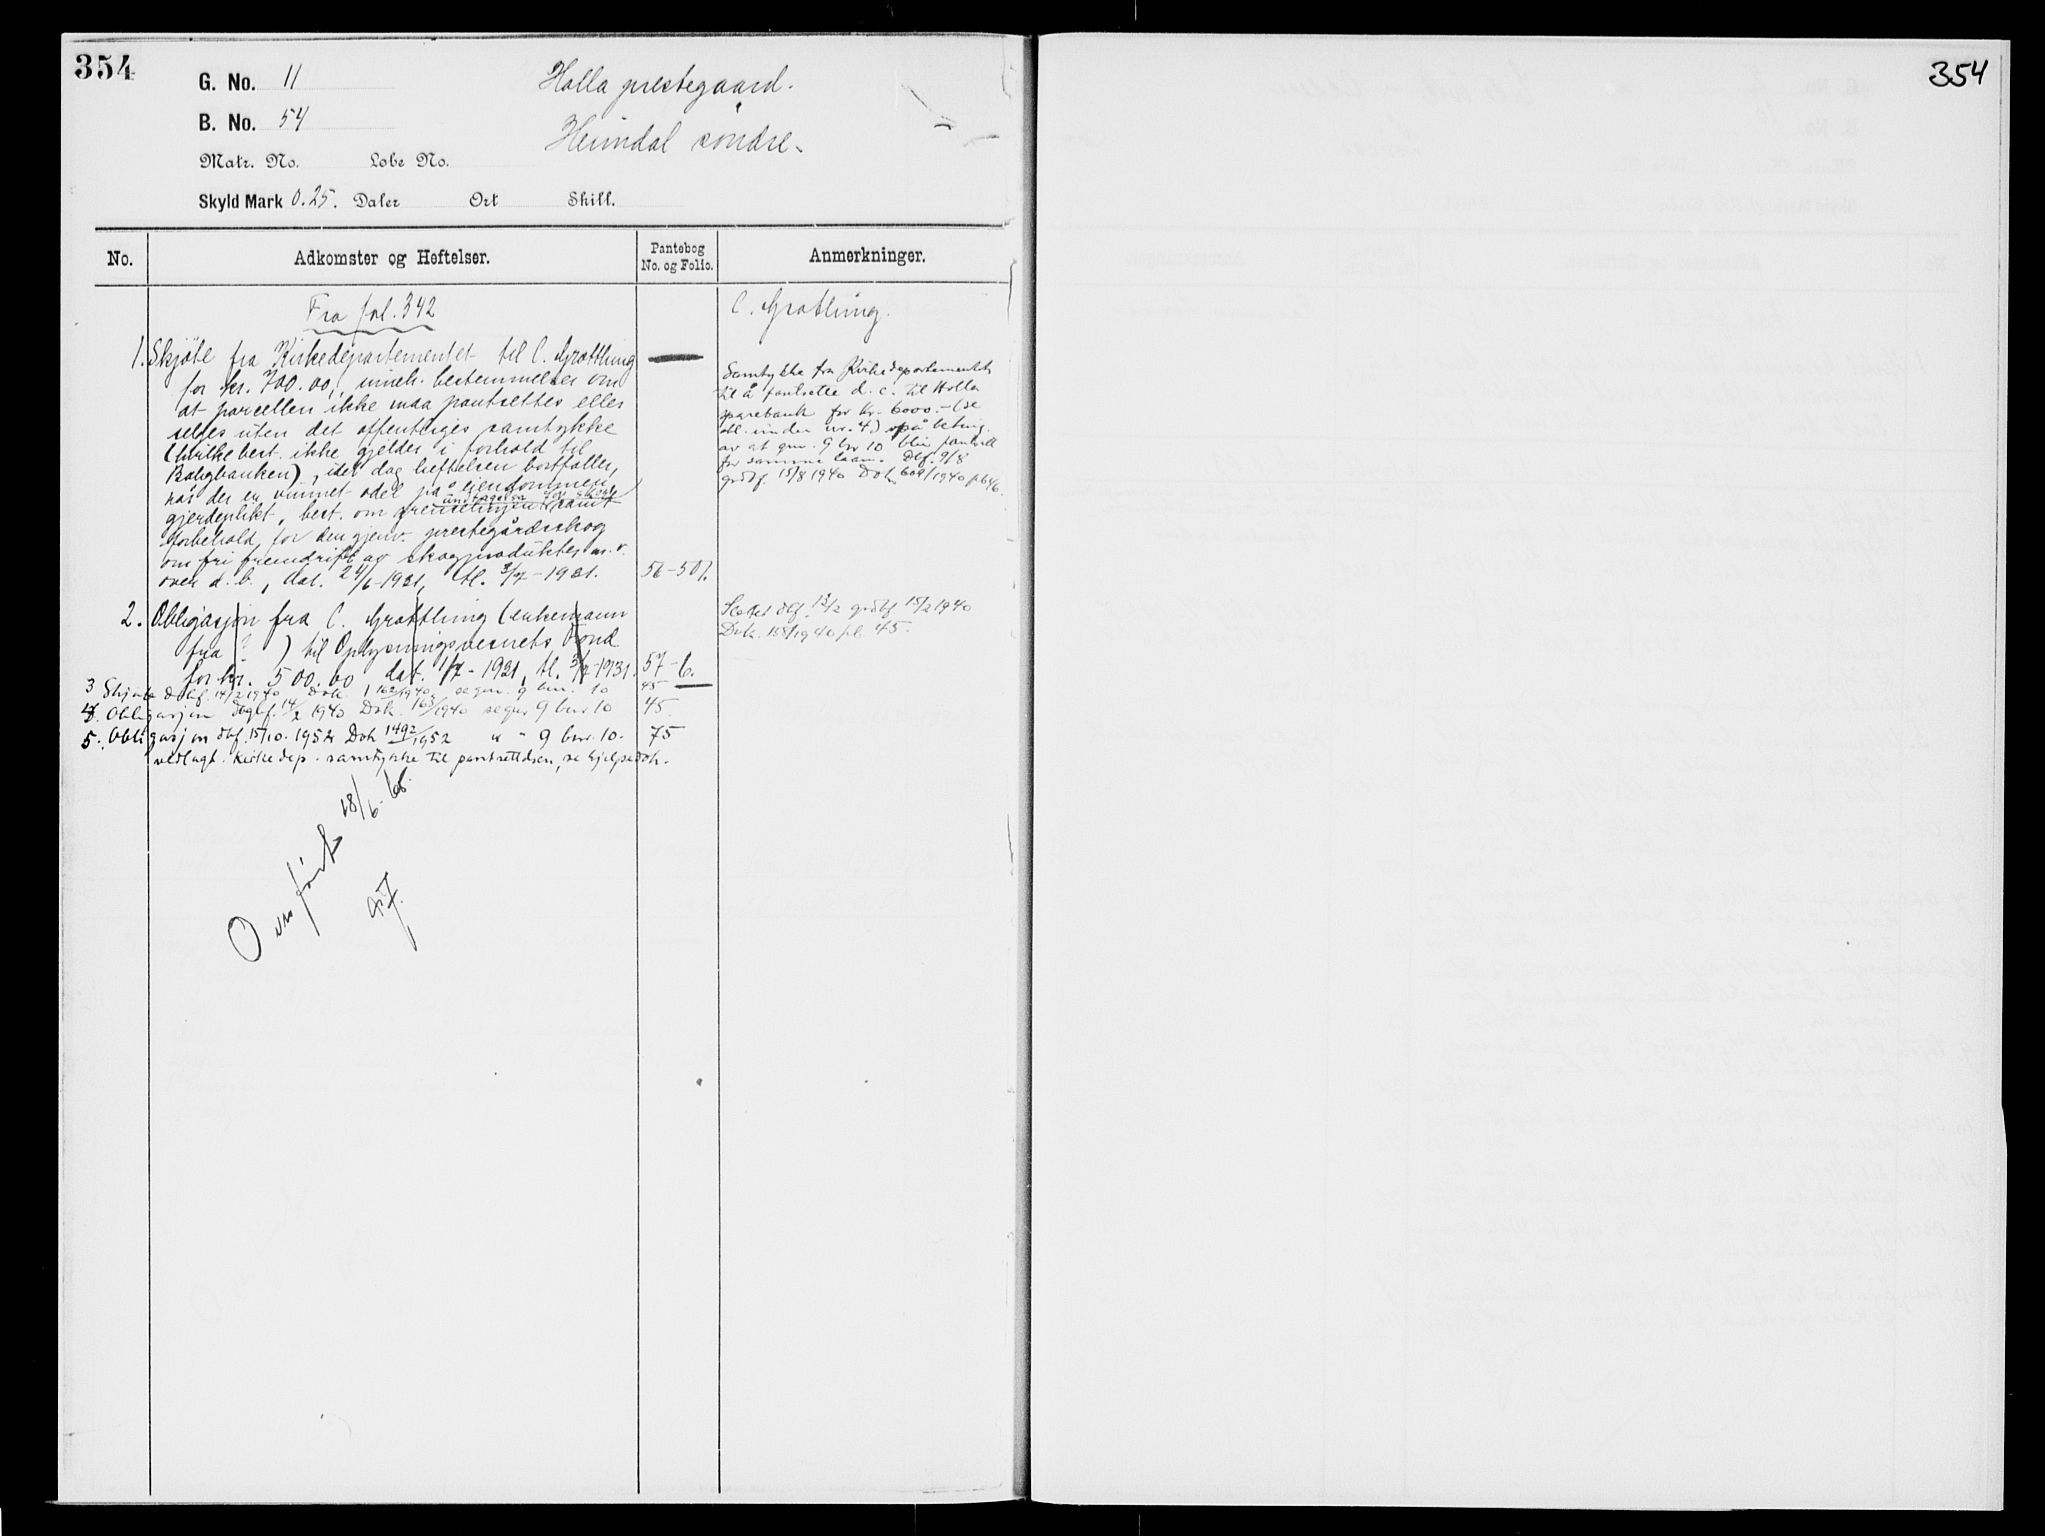 354
G. No. 11 Holla prestegaard.
B. No. 54 Heimdal søndre.
Matr. No. Løbe No.
Skyld Mark 0.25. Daler Ort Skill.
No. Adkomster og Heftelser. Pantebog No. og Folio. Anmerkninger.
Fra fol. 342
1. Skjøte fra Kirkedepartementet til C. Grøttling
for kr. 700.00, inneh. bestemmelser om
at parcellen ikke maa pantsettes eller
selges uten det offentliges samtykke
(hvilke best. ikke gjelder i forhold til
Boligbanken), idet dog heftelsen bortfaller,
når der er vunnet odel på eiendommen,
gjerdeplikt, best. om samt
forbehold for den gjenv. prestegårdsskog
om fri fremdrift av skogprodukter m. v.
over d. b., dat. 24/6-1931, tl. 3/7-1931. 56-501.
2. Obligasjon fra C. Grøttling (enkemann
fra ? ) til Oplysningsvesnets Fond
for kr. 500.00 dat. 1/7-1931, tl. 3/7-1931. 57-6.
3 Skjøte dagbf. 14/2 1940 Dok. 162/1940, se gnr. 9 bnr. 10 45
4. Obligasjon dagbf. 14/2 1940 Dok. 163/1940 se gnr 9 bnr 10 45.
5. Obligasjon dbf. 15/10-1952 Dok 1492/1952 " " 9 bnr. 10. 75
vedlagt Kirkedep. samtykke til pantsettelsen, se hjelpedok.
Overført 18/6-68
C. Grøttling.
Samtykke fra Kirkedepartementet
til å pantsette d. e. til Holla
sparebank for kr. 6000.- (se
obl. under nr. 4) på beting.
av at gnr. 9 bnr 10 blir pantsatt
for samme laan. Dat. 9/8
grdbf 15/8 1940 Dok. 609/1940 p646.
Slettet dbf. 13/2 grdbf 15/2 1940
Dok. 158/1940 pl. 45.
354